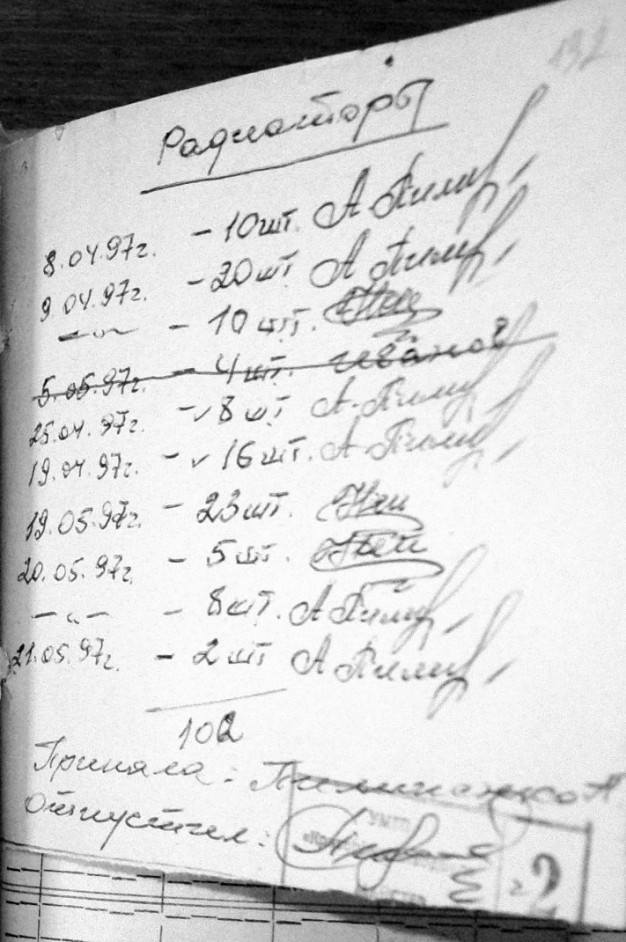 132
Радиаторы
8.04.97г. - 10шт. А Пилип
9.04.97г. - 20шт А Пилип
—"— - 10 шт.
5.05.97г. - 4шт. Иванов
25.04.97г. - ✓ 8 шт А. Пилип
19.04.97г. - ✓ 16шт. А Пилип
19.05.97г. - 23шт.
20.05.97г. - 5шт.
—"— - 8шт. А Пилип
21.05.97г. - 2шт А Пилип
102
Приняла:
Отпустил:
2